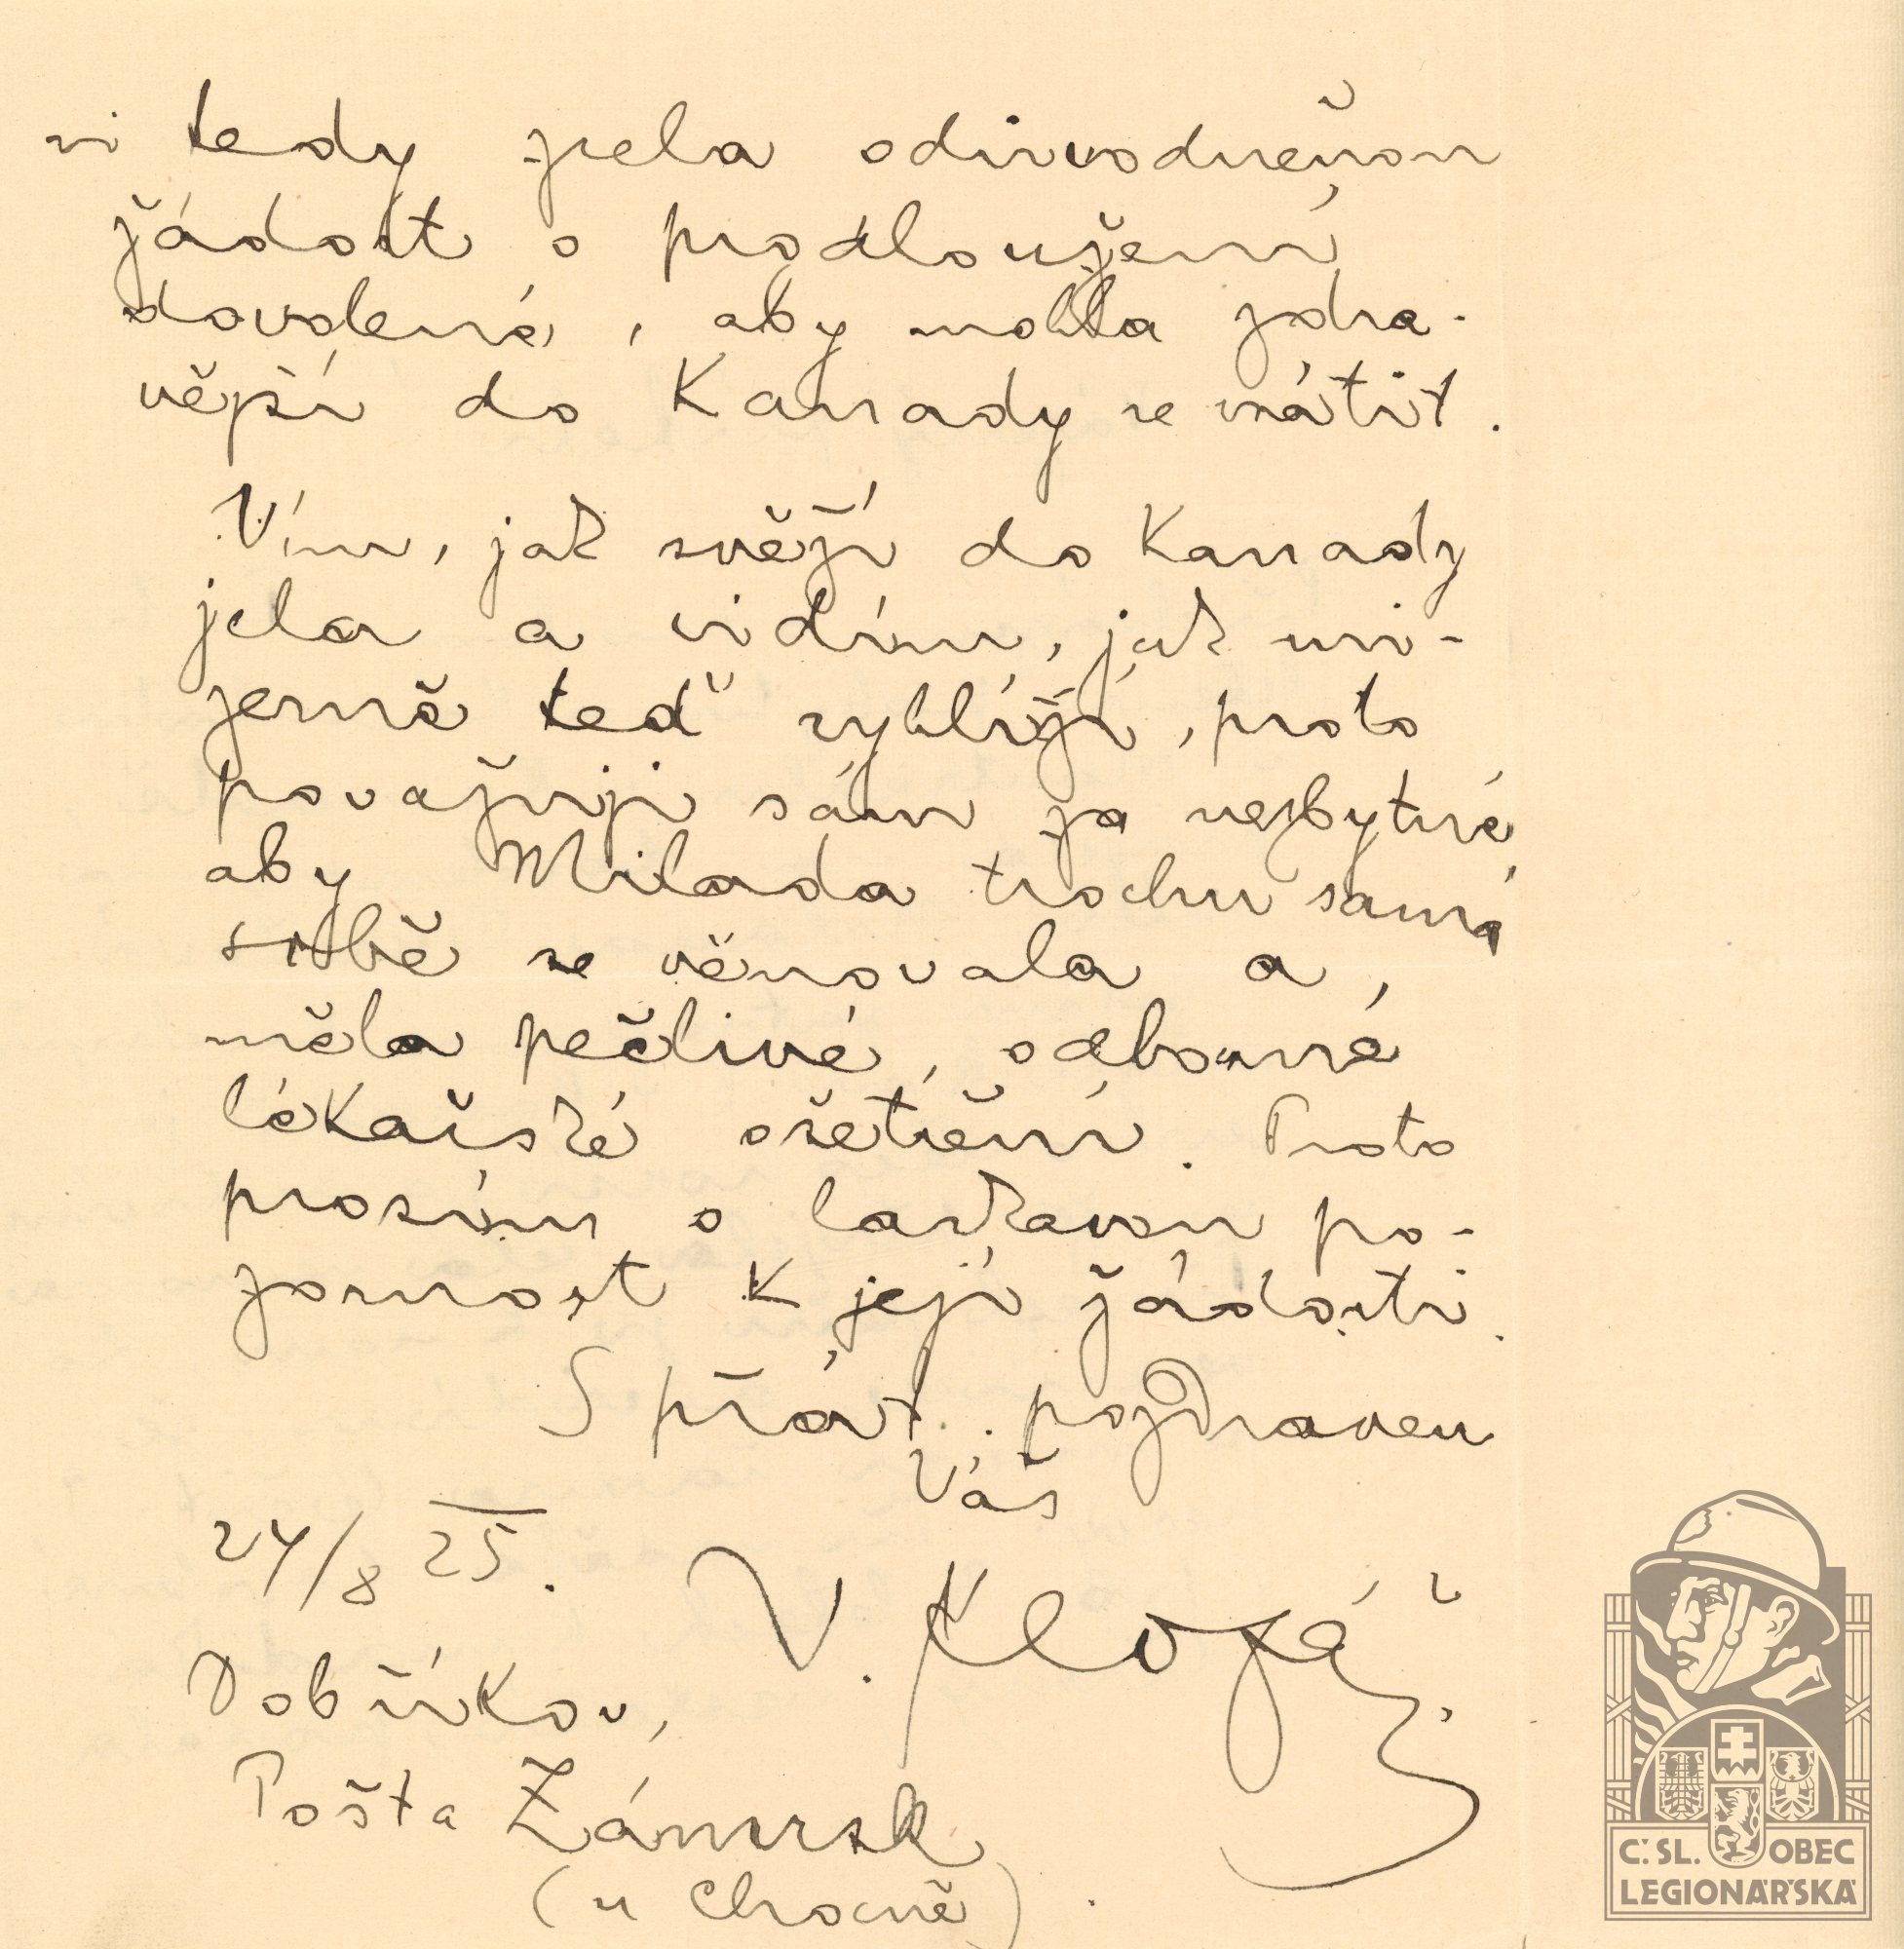 vi tedy zcela odůvodněnou
žádost o prodloužení
dovolené, aby mohla zdra-
vější do Kanady se vrátit.
Vím, jak svěží do Kanady
jela a vidím, jak uni-
zerně teď vyhlíží, proto
považuji sám za nezbytné
aby Milada trochu samé
sobě se věnovala a,
měla pečlivé, odborné
lékařské ošetření. Proto
prosím o laskavou po-
zornost k její žádosti.
S přát. pozdravem
Váš
24/8 25.
V. Klo
Dobříkov,
Pošta Zámrsk
(u Chocně).
Č.SL. OBEC
LEGIONÁŘSKÁ